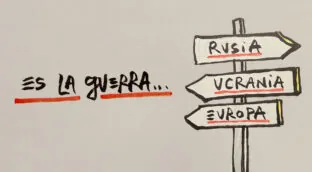 ES LA GUERRA...
RUSIA
UCRANIA
EUROPA